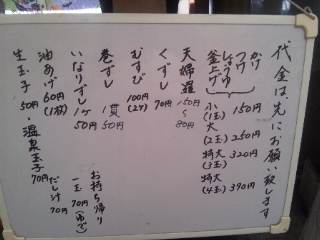 代金は先にお願い致します
かけ
つけ
しょうゆ
釜上げ
小(1玉) 150円
大(2玉) 250円
特大(3玉) 320円
特大(4玉) 390円
天婦羅 150円~80円
くずし 70円
むすび 100円(2ケ)
巻ずし 1貫50円
いなりずし 1ケ50円
油あげ 60円(1枚)
生玉子 50円・温泉玉子 70円
お持ち帰り
一玉 70円(ゆで)
だし汁 70円